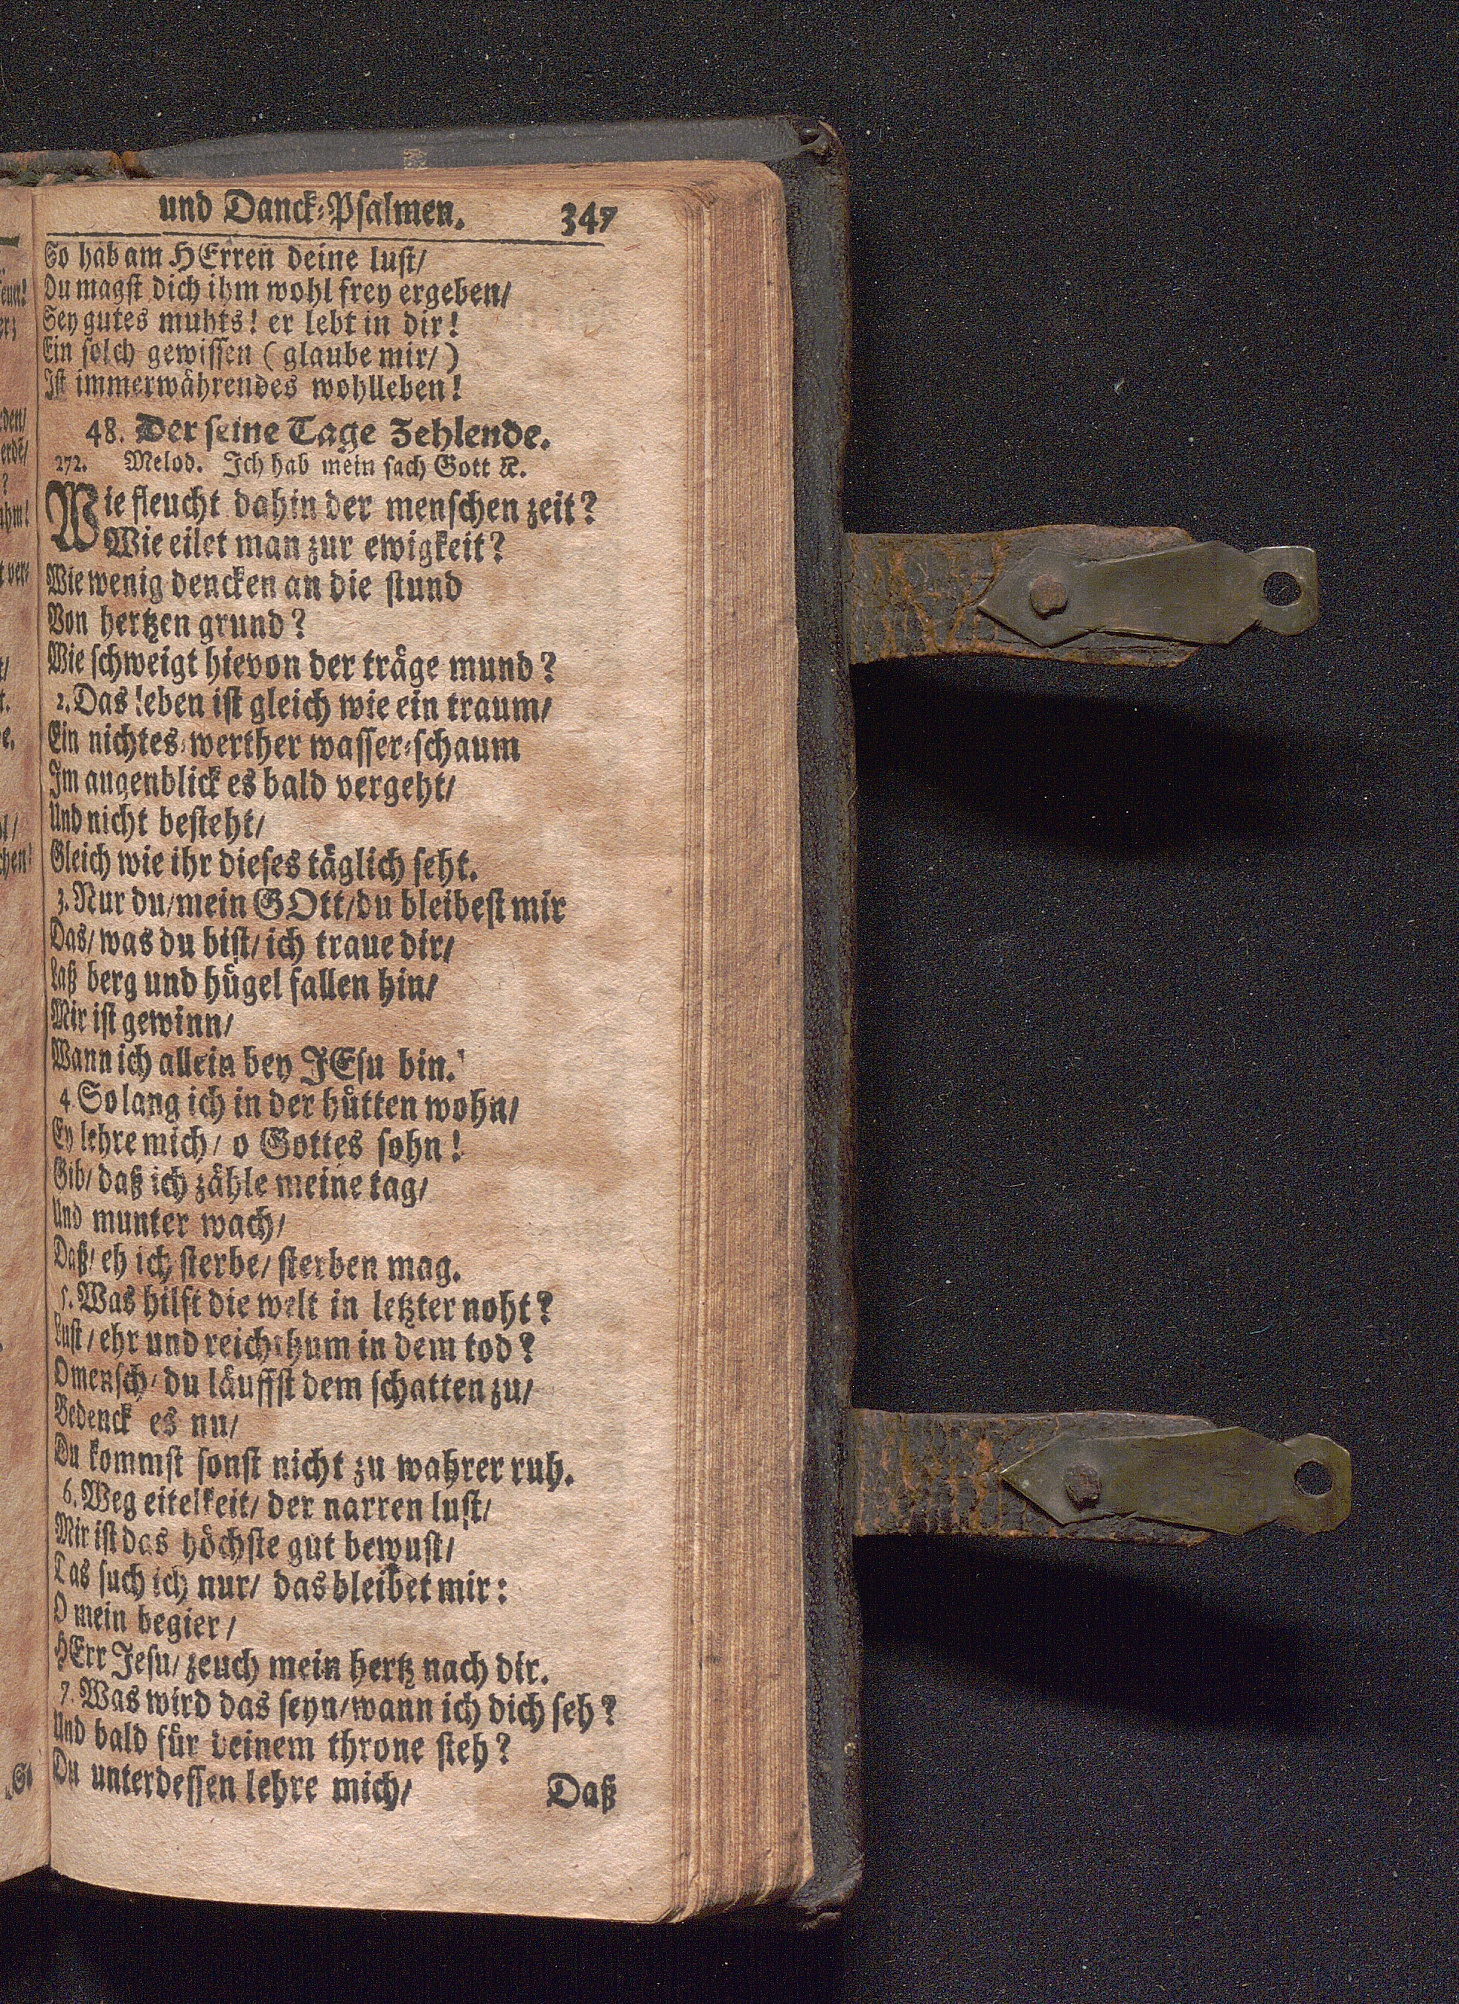 und Danck-Psalmen. 347
So hab am HErren deine lust/
Du magst dich ihm wohl frey ergeben/
Sey gutes muhts! er lebt in dir!
Ein solch gewissen (glaube mir/)
Ist immerwährendes wohlleben!
48. Der seine Tage Zehlende.
272. Melod. Ich hab mein sach Gott ꝛc.
Wie fleucht dahin der menschen zeit?
Wie eilet man zur ewigkeit?
Wie wenig dencken an die stund
Von hertzen grund?
Wie schweigt hievon der träge mund?
2. Das leben ist gleich wie ein traum/
Ein nichtes-werther wasser-schaum
Im augenblick es bald vergeht/
Und nicht besteht/
Gleich wie ihr dieses täglich seht.
3. Nur du/mein GOtt/du bleibest mir
Das/ was du bist/ ich traue dir/
Laß berg und hügel fallen hin/
Mir ist gewinn/
Wann ich allein bey JEsu bin.
4. So lang ich in der hütten wohn/
Ey lehre mich/ o Gottes sohn!
Gib/ daß ich zähle meine tag/
Und munter wach/
Daß/ eh ich sterbe/ sterben mag.
5. Was hilft die welt in letzter noht?
Lust/ ehr und reichthum in dem tod?
O mensch/ du läuffst dem schatten zu/
Bedenck es nu/
Du kommst sonst nicht zu wahrer ruh.
6. Weg eitelkeit/ der narren lust/
Mir ist das höchste gut bewust/
Das such ich nur/ das bleibet mir:
O mein begier/
HErr Jesu/ zeuch mein hertz nach dir.
7. Was wird das seyn/wann ich dich seh?
Und bald für deinem throne steh?
Du unterdessen lehre mich/
Daß